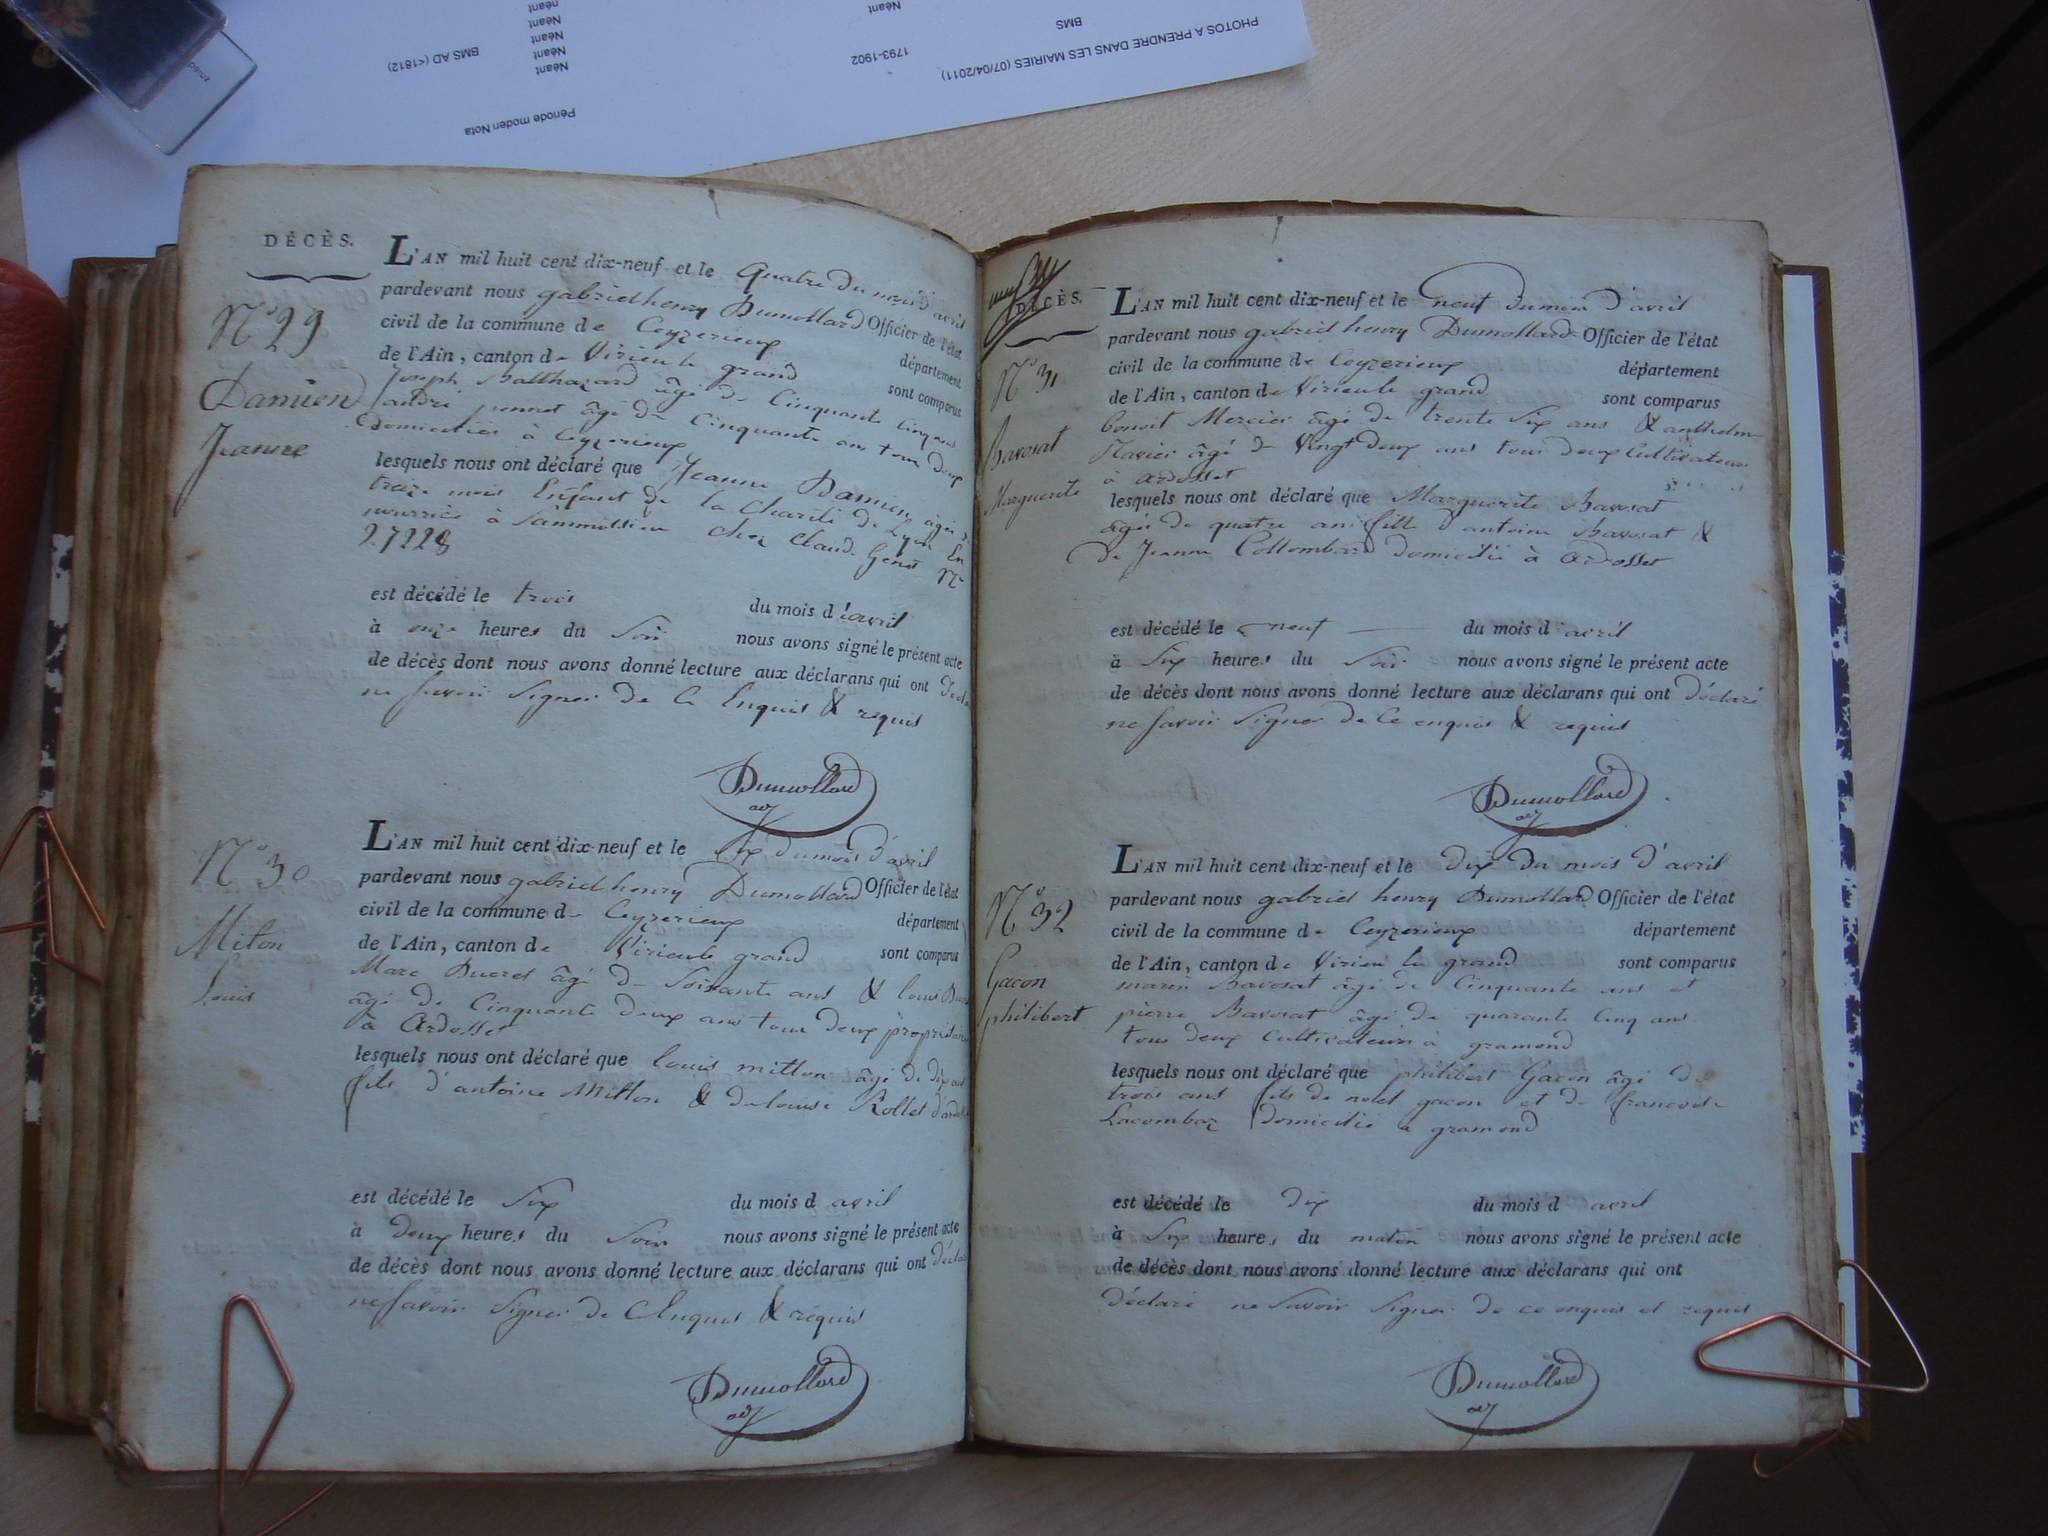 PHOTOS A PRENDRE DANS LES MAIRIES (07/04/2011)
BMS
Néant
1793-1902
BMS AD (<1812)
néant
Néant
Néant
Néant
Période moden Nota
DÉCÈS.
N° 29
Damien
Jeanne
L'AN mil huit cent dix-neuf et le quatre du mois d'avril
pardevant nous gabriel henry Dumollard Officier de l'état
civil de la commune de Ceyzerieux département
de l'Ain, canton de Virieu le grand sont comparus
Joseph Balthazard âgé de Cinquante cinq ans
andré ponnet âgé de Cinquante ans tous deux
domiciliés à Ceyzerieux
lesquels nous ont déclaré que Jeanne Damien âgée de
treize mois Enfant de la Charité de Lyon En
nourrice à Sammossieu chez Claude Genot N°
27228
est décédé le trois du mois d'avril
à onze heures du Soir nous avons signé le présent acte
de décès dont nous avons donné lecture aux déclarans qui ont décla
ne Savoir Signer de Ce Enquis & requis
Dumollard
adj
N° 30
Miton
Louis
L'AN mil huit cent dix-neuf et le Six du mois d'avril
pardevant nous gabriel henry Dumollard Officier de l'état
civil de la commune de Ceyzerieux département
de l'Ain, canton de Virieu le grand sont comparus
Marc Ducret âgé de Soixante ans & louis
âgé de Cinquante deux ans tous deux propriétaires
à Ardosset
lesquels nous ont déclaré que louis mitton âgé de dix ans
fils d'antoine Mitton & de louise Rollet d'ardosset
est décédé le Six du mois d avril
à deux heures du Soir nous avons signé le présent acte
de décès dont nous avons donné lecture aux déclarans qui ont décla
ne Savoir Signer de Ce Enquis & requis
Dumollard
adj
DÉCÈS.
N° 31
Bavosat
Marguerite
L'AN mil huit cent dix-neuf et le neuf du mois d'avril
pardevant nous gabriel henry Dumollard Officier de l'état
civil de la commune de Ceyzerieux département
de l'Ain, canton de Virieu le grand sont comparus
benoit Mercier âgé de trente Six ans & anthelme
âgé de Vingt deux ans tous deux Cultivateurs
à ardosset
lesquels nous ont déclaré que Marguerite Bavosat
âgée de quatre ans fille d'antoine Bavosat &
de Jeanne Collombard domicilié à Ardosset
est décédé le neuf du mois d'avril
à Six heures du Soir nous avons signé le présent acte
de décès dont nous avons donné lecture aux déclarans qui ont déclaré
ne Savoir Signer de Ce enquis & requis
Dumollard
adj
N° 32
Gacon
philibert
L'AN mil huit cent dix-neuf et le dix du mois d'avril
pardevant nous gabriel henry Dumollard Officier de l'état
civil de la commune de Ceyzerieux département
de l'Ain, canton de Virieu le grand sont comparus
marin Bavosat âgé de Cinquante ans et
pierre Bavosat âgé de quarante Cinq ans
tous deux Cultivateurs à gramond
lesquels nous ont déclaré que philibert Gacon âgé de
trois ans fils de noel gacon et de francoise
Lacombaz domicilié a gramond
est décédé le dix du mois d avril
à Six heures du matin nous avons signé le présent acte
de décès dont nous avons donné lecture aux déclarans qui ont
déclaré ne Savoir Signer de ce enquis et requis
Dumollard
adj